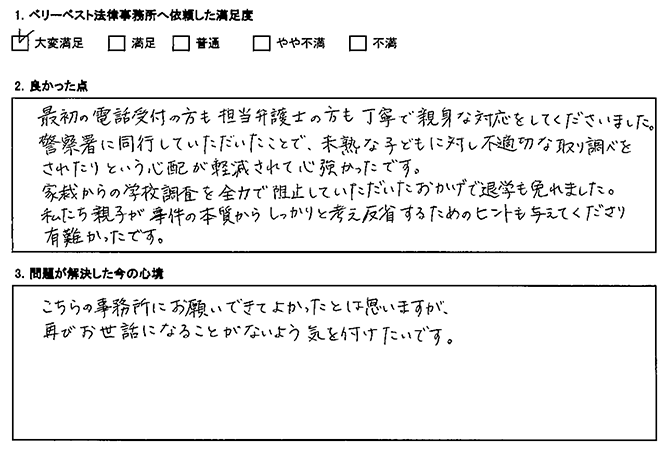 1. ベリーベスト法律事務所へ依頼した満足度
大変満足 満足 普通 やや不満 不満
2. 良かった点
最初の電話受付の方も担当弁護士の方も丁寧で親身な対応をしてくださいました。
警察署に同行していただいたことで、未熟な子どもに対し不適切な取り調べを
されたりという心配が軽減されて心強かったです。
家裁からの学校調査を全力で阻止していただいたおかげで退学も免れました。
私たち親子が事件の本質からしっかりと考え反省するためのヒントも与えてくださり
有難かったです。
3. 問題が解決した今の心境
こちらの事務所にお願いできてよかったとは思いますが、
再びお世話になることがないよう気を付けたいです。